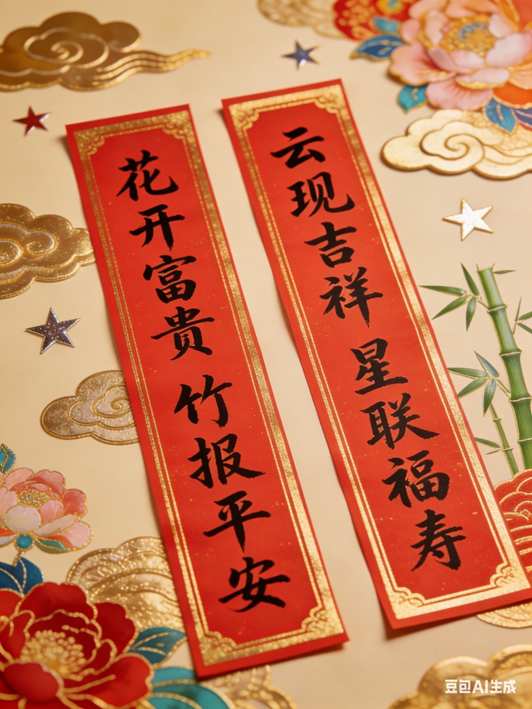 云现吉祥 星联福寿
花开富贵 竹报平安
豆包AI生成